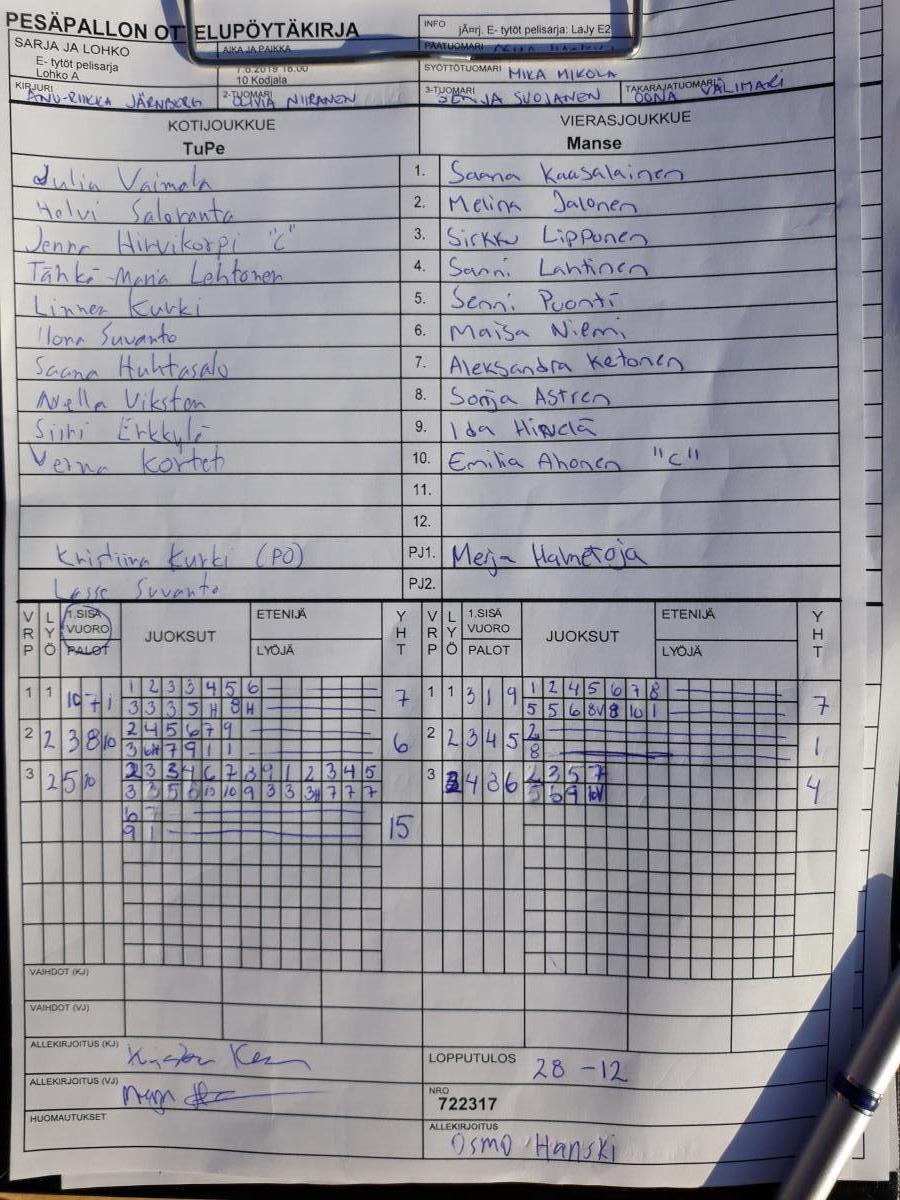 PESÄPALLON OTTELUPÖYTÄKIRJA
INFO
jÃ¤rj. E- tytöt pelisarja: LaJy E2
SARJA JA LOHKO
E- tytöt pelisarja
Lohko A
AIKA JA PAIKKA
7.6.2019 18.00
10 Kodjala
PÄÄTUOMARI
SYÖTTÖTUOMARI MIKA MIKOLA
KIRJURI
ANU-RIIKKA JÄRNBORG
2-TUOMARI
OLIVIA NIIRANEN
3-TUOMARI
SENJA SUOJANEN
TAKARAJATUOMARI
OONA VÄLIMARI
KOTIJOUKKUE
TuPe
VIERASJOUKKUE
Manse
Julia Vaimala 1. Saana Kaasalainen
Helvi Saloranta 2. Melina Jalonen
Jenna Hirvikorpi "C" 3. Sirkku Lipponen
Tähkä-Maria Lehtonen 4. Sanni Lahtinen
Linnea Kurki 5. Senni Puonti
Ilona Suvanto 6. Maisa Niemi
Saana Huhtasalo 7. Aleksandra Ketonen
Vikston 8. Sonja Astren
Siiri Erkkylä 9. Ida
Verna Korteh 10. Emilia Ahonen "C"
11.
12.
Kristiina Kurki (PO) PJ1. Merja
Lasse Suvanto PJ2.
VRP LYÖ 1.SISÄ VUORO PALOT JUOKSUT ETENIJÄ LYÖJÄ YHT VRP LYÖ 1.SISÄ VUORO PALOT JUOKSUT ETENIJÄ LYÖJÄ YHT
1 1 10 7 1 1 2 3 3 4 5 6 7 1 1 3 1 9 1 2 4 5 6 7 8 7
3 3 3 5 H 8 H 5 5 6 8V 8 10 1
2 2 3 8 10 2 4 5 6 7 9 6 2 2 3 4 5 2 1
3 6H 7 9 1 1 8
3 2 5 10 2 3 3 4 6 7 8 9 1 2 3 4 5 3 4 8 6 2 3 5 7 4
3 3 5 6 10 10 9 3 3 3H 7 7 7 5 6 9
6 7 15
9 1
VAIHDOT (KJ)
VAIHDOT (VJ)
ALLEKIRJOITUS (KJ)
LOPPUTULOS 28 -12
ALLEKIRJOITUS (VJ)
NRO
722317
HUOMAUTUKSET
ALLEKIRJOITUS
Osmo Hanski